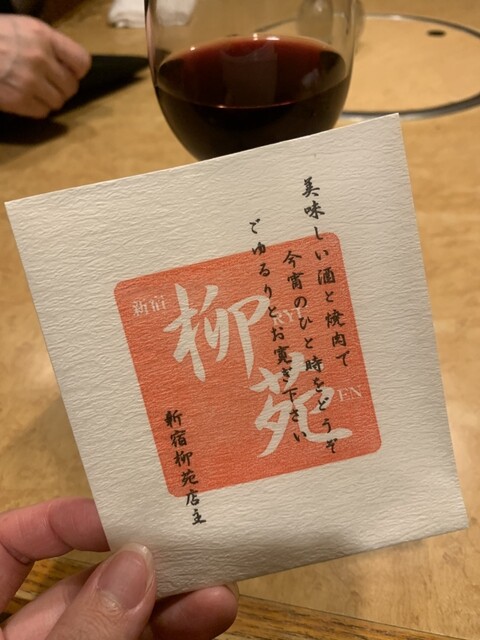 美味しい酒と焼肉で
今宵のひと時をどうぞ
ごゆるりとお寛ぎ下さい
新宿柳苑店主
新宿
柳苑
RYU
EN